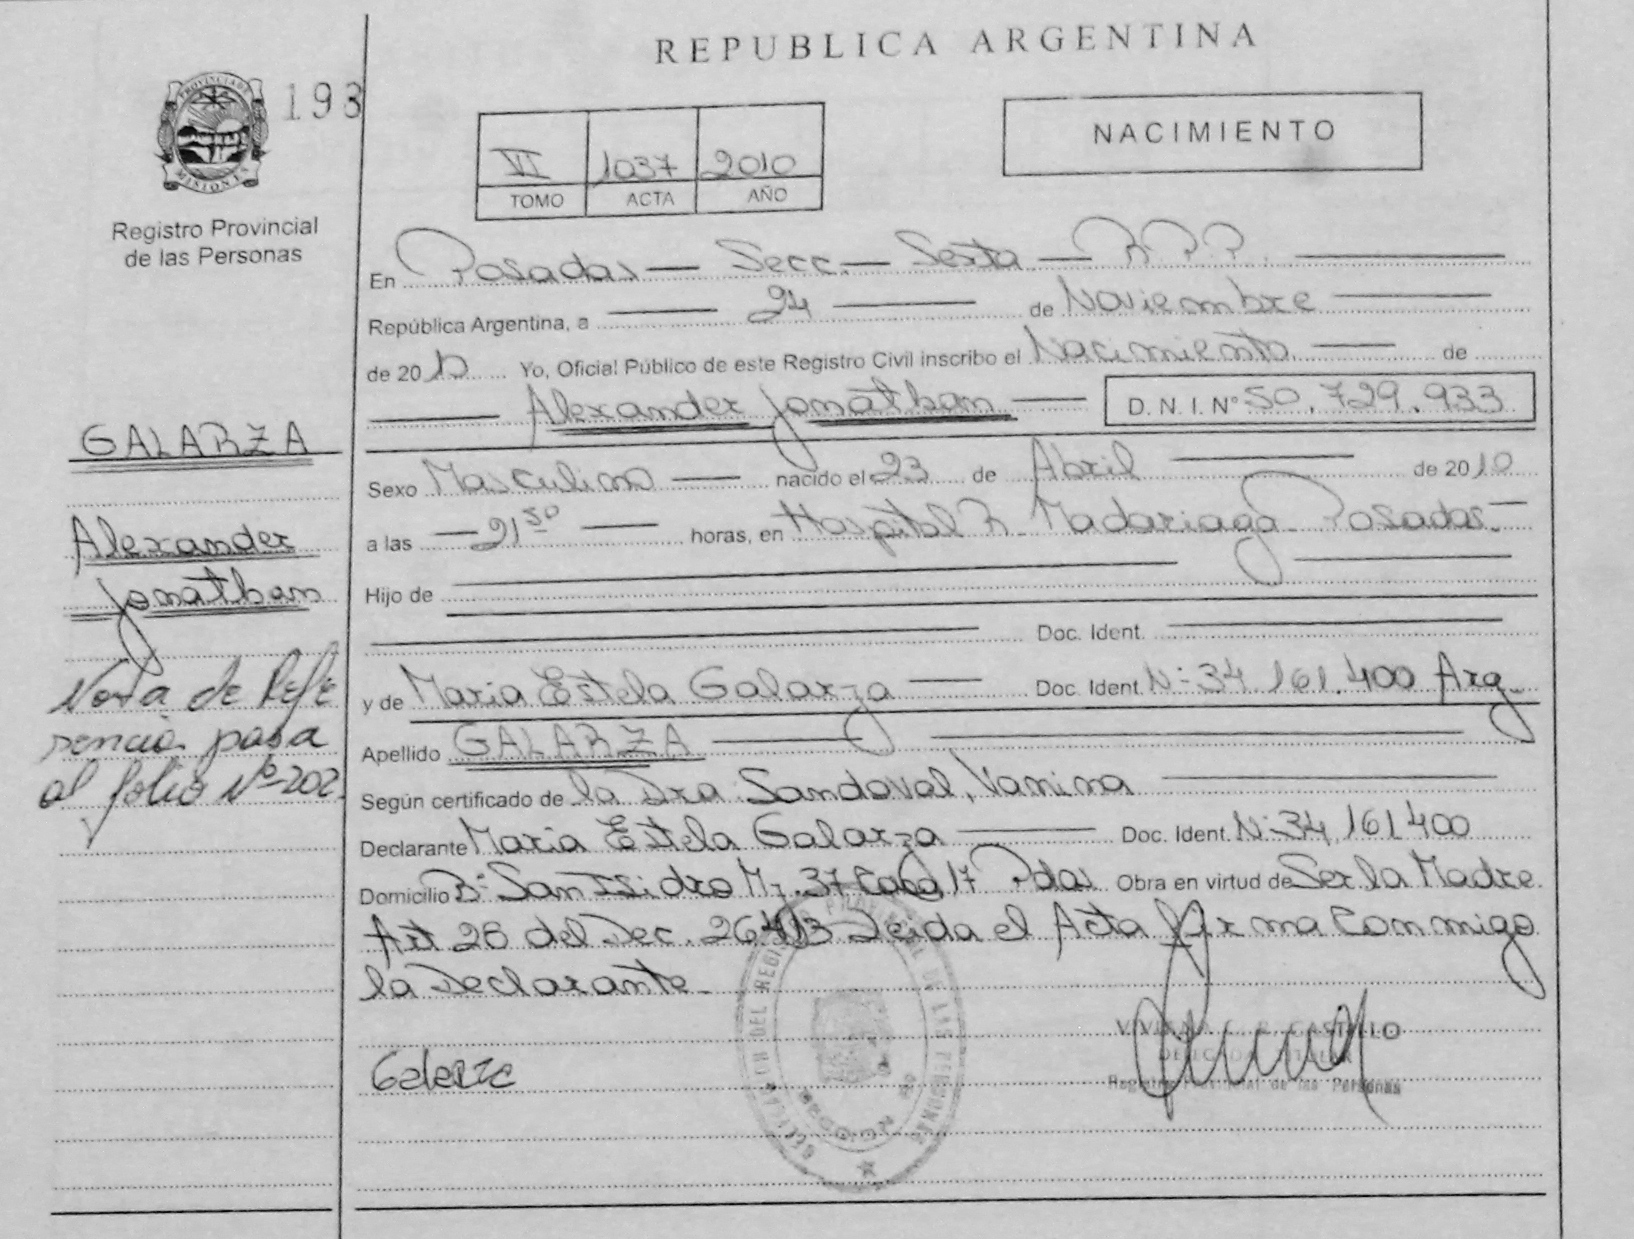 REPUBLICA ARGENTINA
PROVINCIA DE
MISIONES
193
Registro Provincial
de las Personas
VI 1037 2010
TOMO ACTA AÑO
NACIMIENTO
En Posadas — Secc. — Sexta — R.P.P.
República Argentina, a 24 de Noviembre
de 2010 Yo, Oficial Público de este Registro Civil inscribo el Nacimiento de
Alexander Jonathan D. N. I. N° 50.729.933
Sexo Masculino nacido el 23 de Abril de 2010
a las 21 50 horas, en Hospital R. Madariaga - Posadas
Hijo de
Doc. Ident.
y de Maria Estela Galarza Doc. Ident. N° 34.161.400 Arg
Apellido GALARZA
Según certificado de la Dra. Sandoval, Vanina
Declarante Maria Estela Galarza Doc. Ident. N° 34.161.400
Domicilio B° San Isidro Mz. 37 Casa 17 Pdas Obra en virtud de Ser la Madre
Art 28 del Dec. 26.413 Leida el Acta firma conmigo
la Declarante.
GALARZA
Alexander
Jonathan
Nota de Refe
rencia pasa
al folio N° 202
Galarza
VIVIANA C. R. CASTELLO
DELEGADA TITULAR
Registro Provincial de las Personas